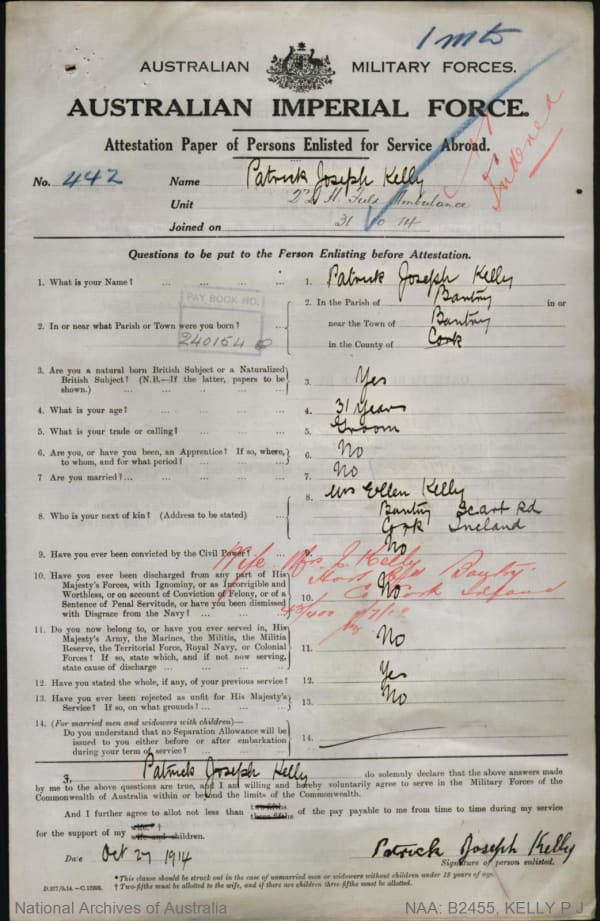 1 mts
AUSTRALIAN MILITARY FORCES.
AUSTRALIAN IMPERIAL FORCE.
Attestation Paper of Persons Enlisted for Service Abroad.
Indexed
No. 442 Name Patrick Joseph Kelly
Unit Field Ambulance
Joined on 31 10 14
Questions to be put to the Person Enlisting before Attestation.
1. What is your Name? ... ... ... ... 1. Patrick Joseph Kelly
PAY BOOK NO.
240154
2. In or near what Parish or Town were you born? ... 2. In the Parish of Bantry in or
near the Town of Bantry
in the County of Cook
3. Are you a natural born British Subject or a Naturalized
British Subject? (N.B.—If the latter, papers to be
shown.) ... ... ... ... 3. Yes
4. What is your age? ... ... ... ... 4. 31 Years
5. What is your trade or calling? ... ... ... 5. Groom
6. Are you, or have you been, an Apprentice? If so, where,
to whom, and for what period? ... ... ... 6. No
7 Are you married?... ... ... ... 7. No
8. Who is your next of kin? (Address to be stated) ... 8. Mrs Ellen Kelly
Bantry Scart Rd
Cook Ireland
9. Have you ever been convicted by the Civil Power? ... 9. No
Wife Mrs J. Kelly
Bantry
Co Cork Ireland
10. Have you ever been discharged from any part of His
Majesty's Forces, with Ignominy, or as Incorrigible and
Worthless, or on account of Conviction of Felony, or of a
Sentence of Penal Servitude, or have you been dismissed
with Disgrace from the Navy? ... ... 10. No
11. Do you now belong to, or have you ever served in, His
Majesty's Army, the Marines, the Militia, the Militia
Reserve, the Territorial Force, Royal Navy, or Colonial
Forces? If so, state which, and if not now serving,
state cause of discharge ... ... ... 11. No
12. Have you stated the whole, if any, of your previous service? 12. Yes
13. Have you ever been rejected as unfit for His Majesty's
Service? If so, on what grounds? ... ... 13. No
14. (For married men and widowers with children)—
Do you understand that no Separation Allowance will be
issued to you either before or after embarkation
during your term of service? ... ... 14.
I, Patrick Joseph Kelly do solemnly declare that the above answers made
by me to the above questions are true, and I am willing and hereby voluntarily agree to serve in the Military Forces of the
Commonwealth of Australia within or beyond the limits of the Commonwealth.
And I further agree to allot not less than two-fifths three-fifths of the pay payable to me from time to time during my service
for the support of my wife. † wife and children.
Date Oct 27 1914 Patrick Joseph Kelly
Signature of person enlisted.
* This clause should be struck out in the case of unmarried men or widowers without children under 18 years of age.
† Two-fifths must be allotted to the wife, and if there are children three-fifths must be allotted.
National Archives of Australia NAA: B2455, KELLY P J